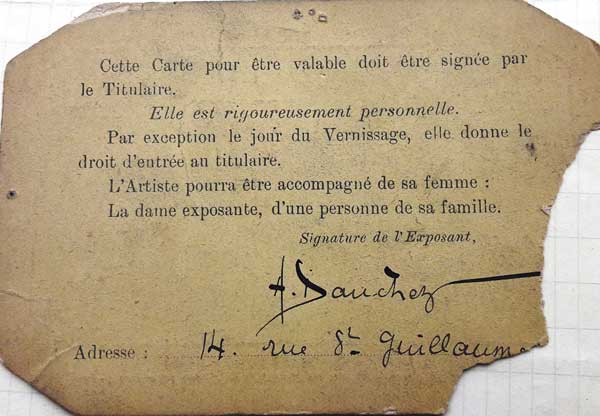 Cette Carte pour être valable doit être signée par
le Titulaire.
Elle est rigoureusement personnelle.
Par exception le jour du Vernissage, elle donne le
droit d'entrée au titulaire.
L'Artiste pourra être accompagné de sa femme :
La dame exposante, d'une personne de sa famille.
Signature de l'Exposant,
A. Dauchez
Adresse : 14. rue St Guillaum